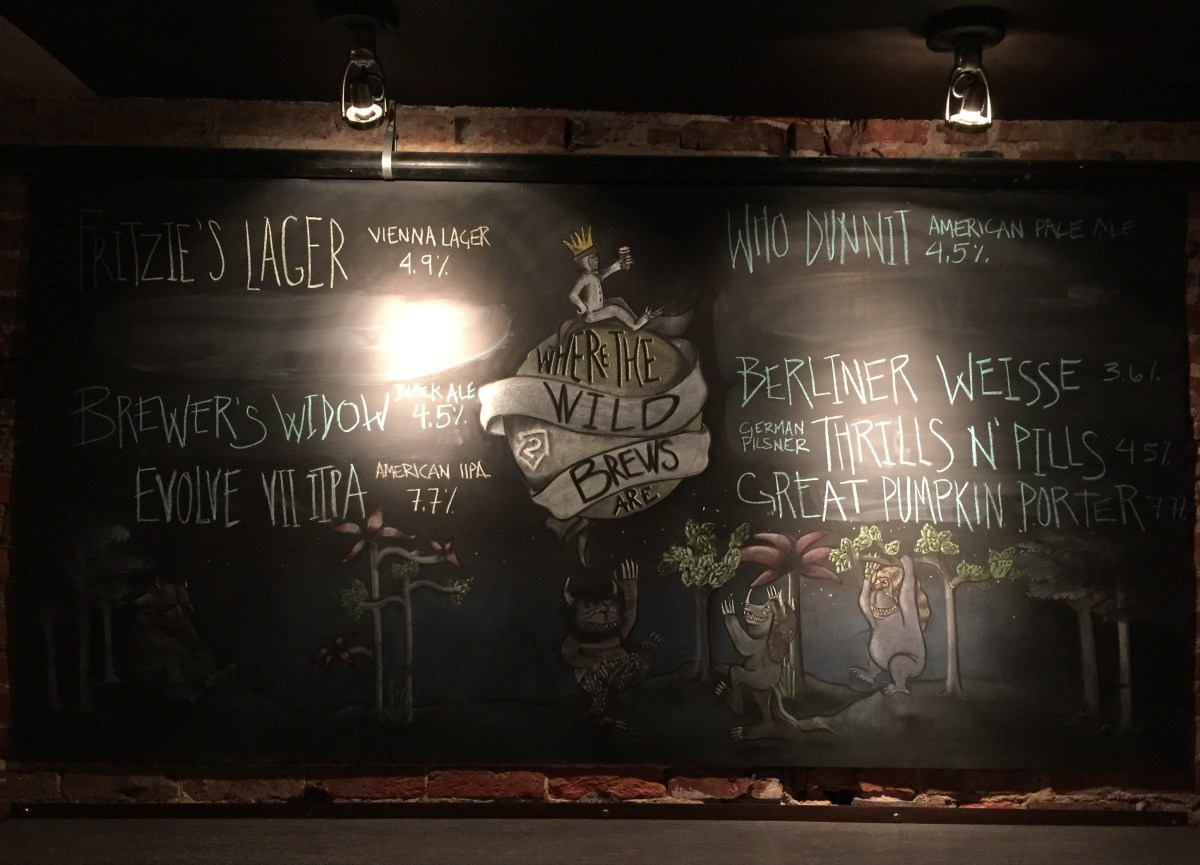 FRITZIE'S LAGER VIENNA LAGER
4.9%
BREWER'S WIDOW BLACK ALE
4.5%
EVOLVE VII IIPA AMERICAN IIPA
7.7%
WHERE THE
WILD
2
BREWS
ARE
WHO DUNNIT AMERICAN PALE ALE
4.5%
BERLINER WEISSE 3.6%
GERMAN
PILSNER THRILLS N' PILLS 4.5%
GREAT PUMPKIN PORTER 7.7%